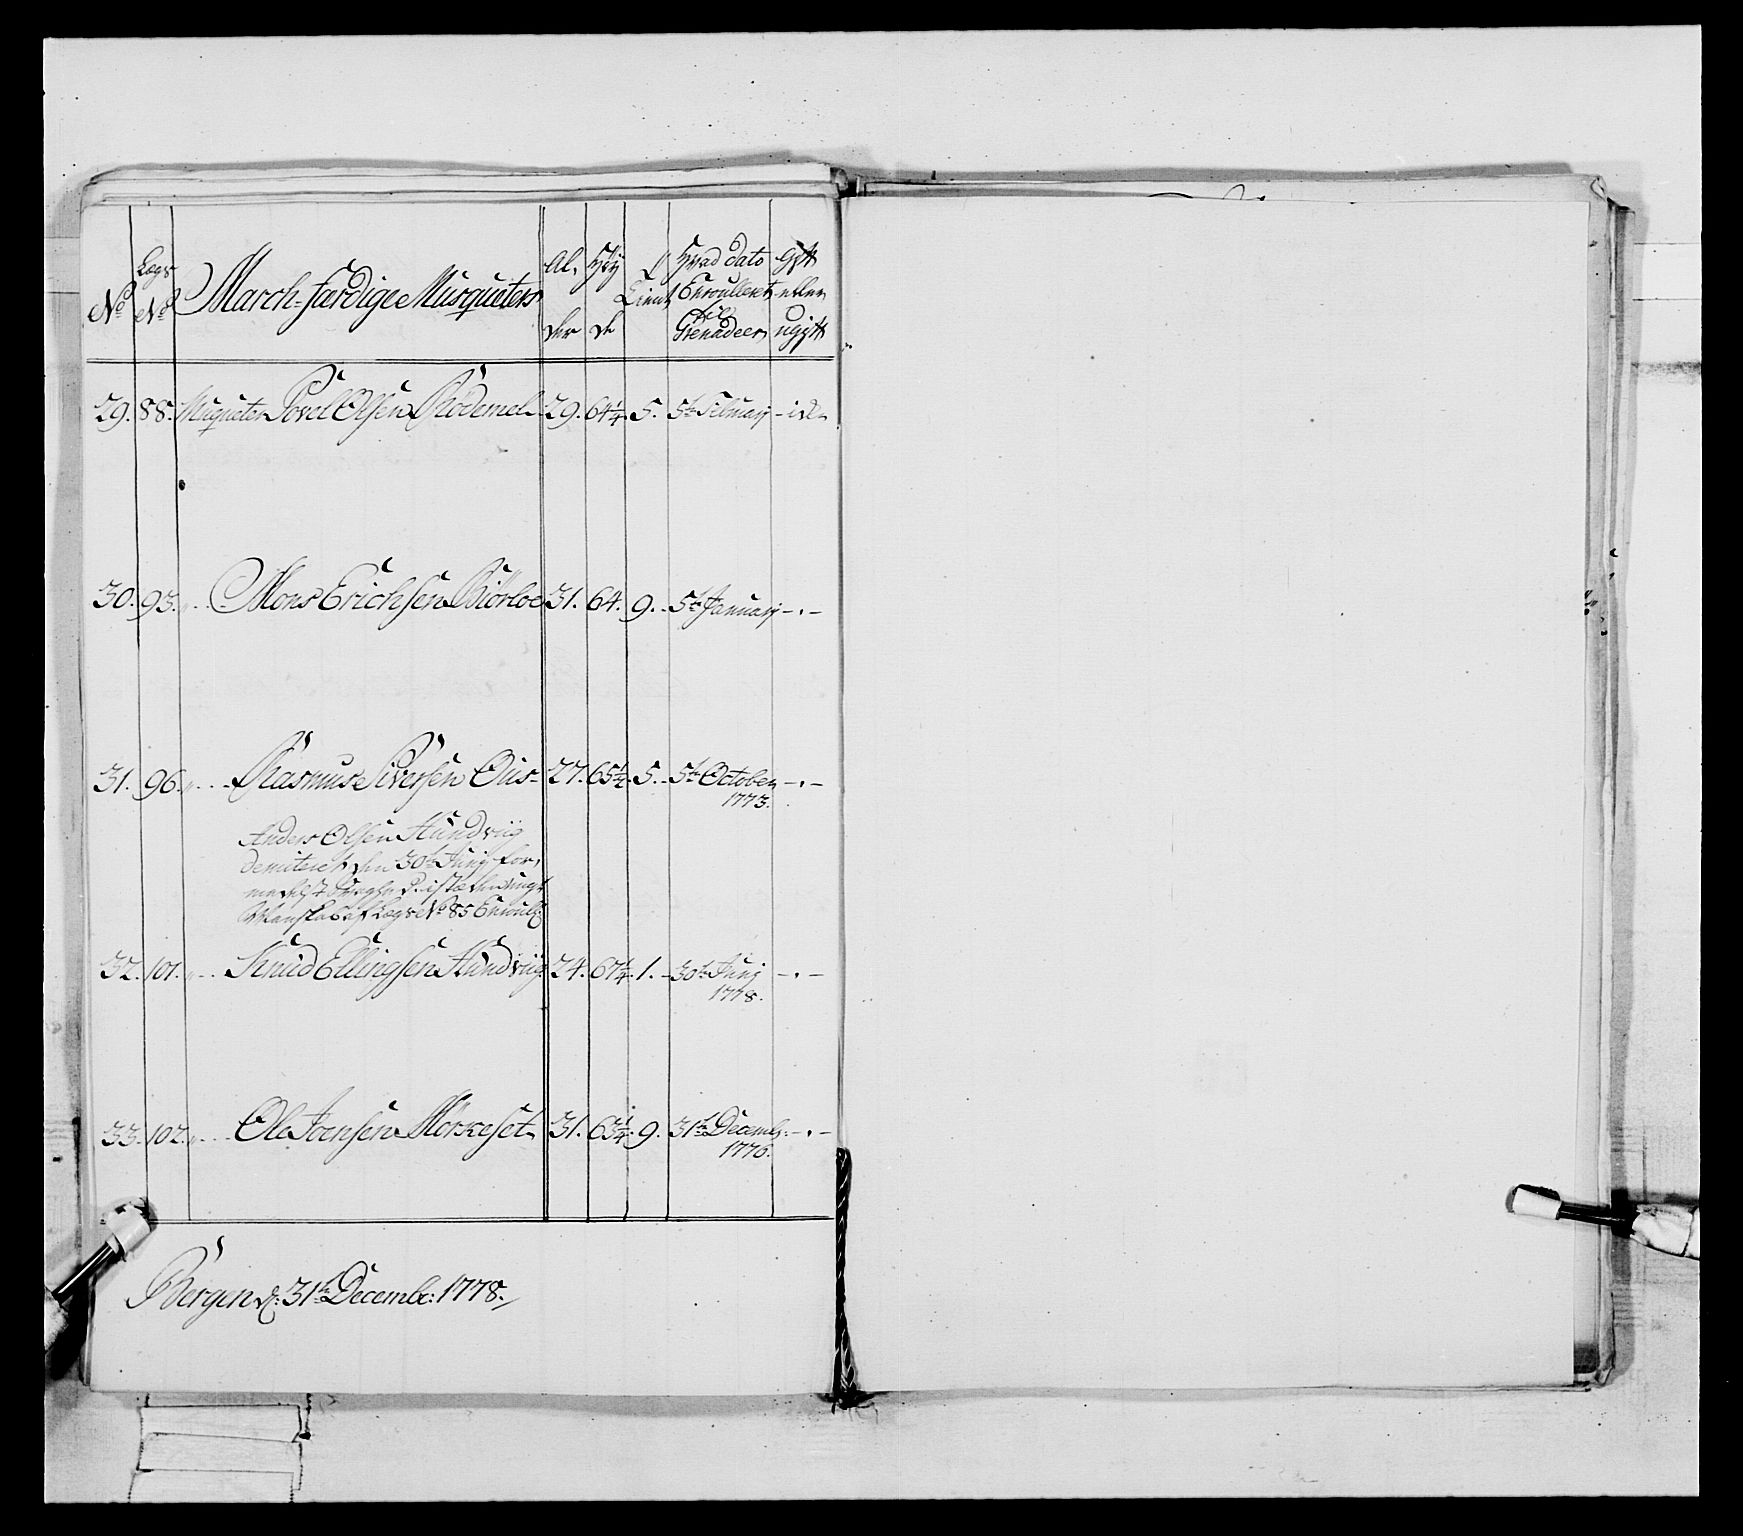 No
Legs No
March-færdige Musqueters
Al, der
Høy de
Tient
Hvad dato Enroulleret til Grenadeer
Gift eller ugift
29. 88. Musqueter Povel Olsen Rødemel 29. 64 1/4 5. 5te Februarj
30. 93. " Mons Erichsen Biørloe 31. 64. 9. 5te Januarj - . -
31. 96. " Rasmus Iversen Ous 27. 65 1/2 5. 5te October - . -
1773.
Anders Olsen Hundviig
demiteret den 30te Junj for,
medelst
Mandskab af Legs No 85 Enroull:
32. 101. " Knud Ellingsen Hundviig 24. 67 1/4 1. 30te Junj - . -
1778.
33. 102. " Ole Joensen Mørkeset 31. 63 1/4 9. 31te Decembr: - . -
1776.
Bergen d: 31te Decembr: 1778.